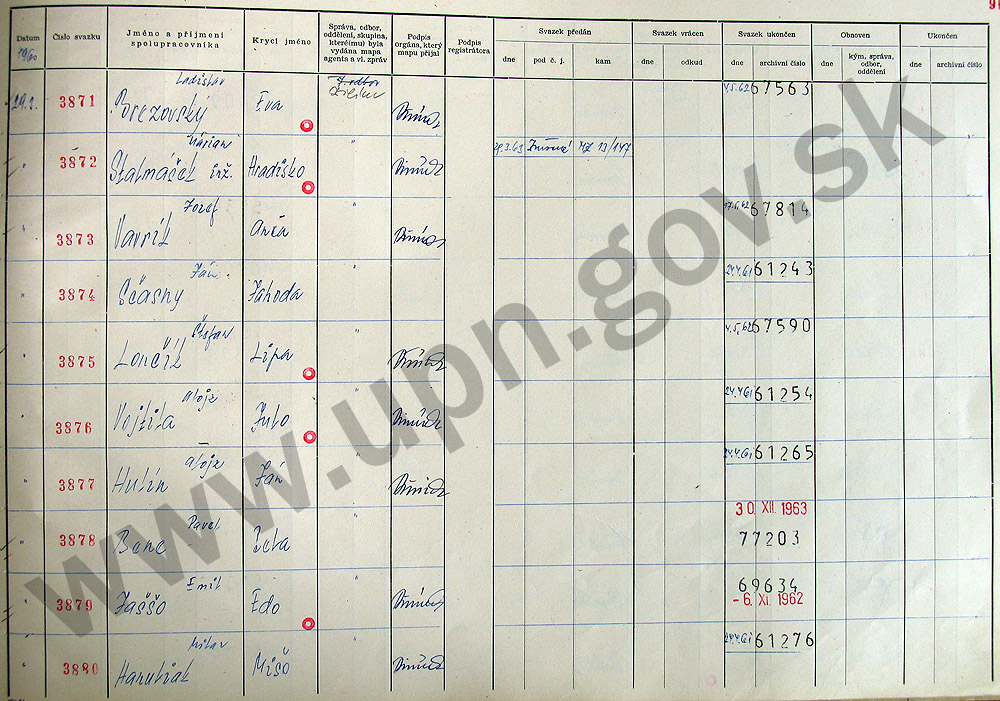 91
Datum
1960
Číslo svazku
Jméno a příjmení
spolupracovníka
Krycí jméno
Správa, odbor,
oddělení, skupina,
které(mu) byla
vydána mapa
agenta a vl. zpráv
Podpis
orgána, který
mapu přijal
Podpis
registrátora
Svazek předán
dne
pod č. j.
kam
Svazek vrácen
dne
odkud
Svazek ukončen
dne
archivní číslo
Obnoven
dne
kým, správa,
odbor,
oddělení
Ukončen
dne
archivní číslo
29.2. 3871 Ladislav Brezovský Eva 4.5.62 67563
" 3872 Marian inž. Hradisko " 29.3.63 MZ 13/147
" 3873 Jozef Vavrík Anča " 67814
" 3874 Ján Sčasny Jahoda " 24.4.61 61243
" 3875 Štefan Lončík Lipa " 4.5.62 67590
" 3876 Alojz Vojtila Julo " 24.4.61 61254
" 3877 Alojz Hulín Ján " 24.4.61 61265
" 3878 Pavel Bene Beta " 30. XII. 1963 77203
" 3879 Emil Jaššo Edo " 69634
- 6. XI. 1962
" 3880 Milan Hanuliak Mišo " 24.4.61 61276
www.upn.gov.sk